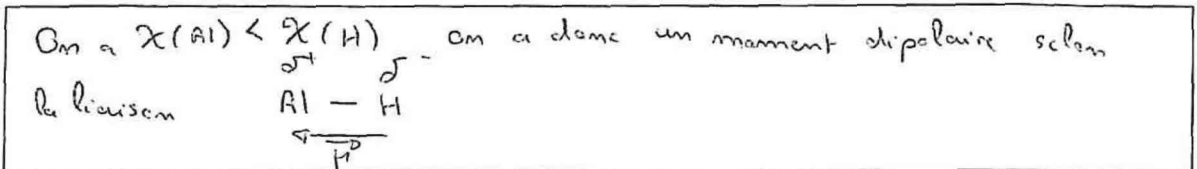 On a χ(Al) < χ(H) on a donc un moment dipolaire selon
δ+ δ-
la liaison Al — H
μ